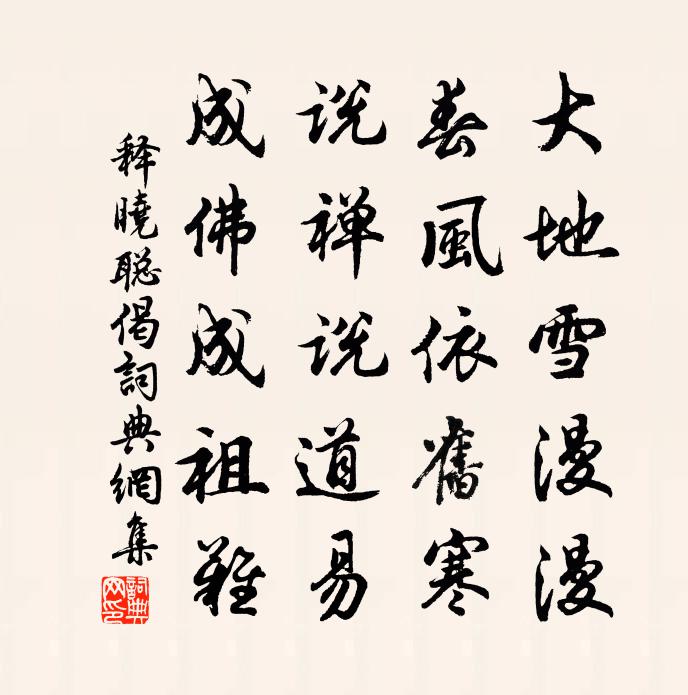 大地雪漫漫
春風依舊寒
说禅说道易
成佛成祖難
释曉聪偈詞典網集
詞典网印